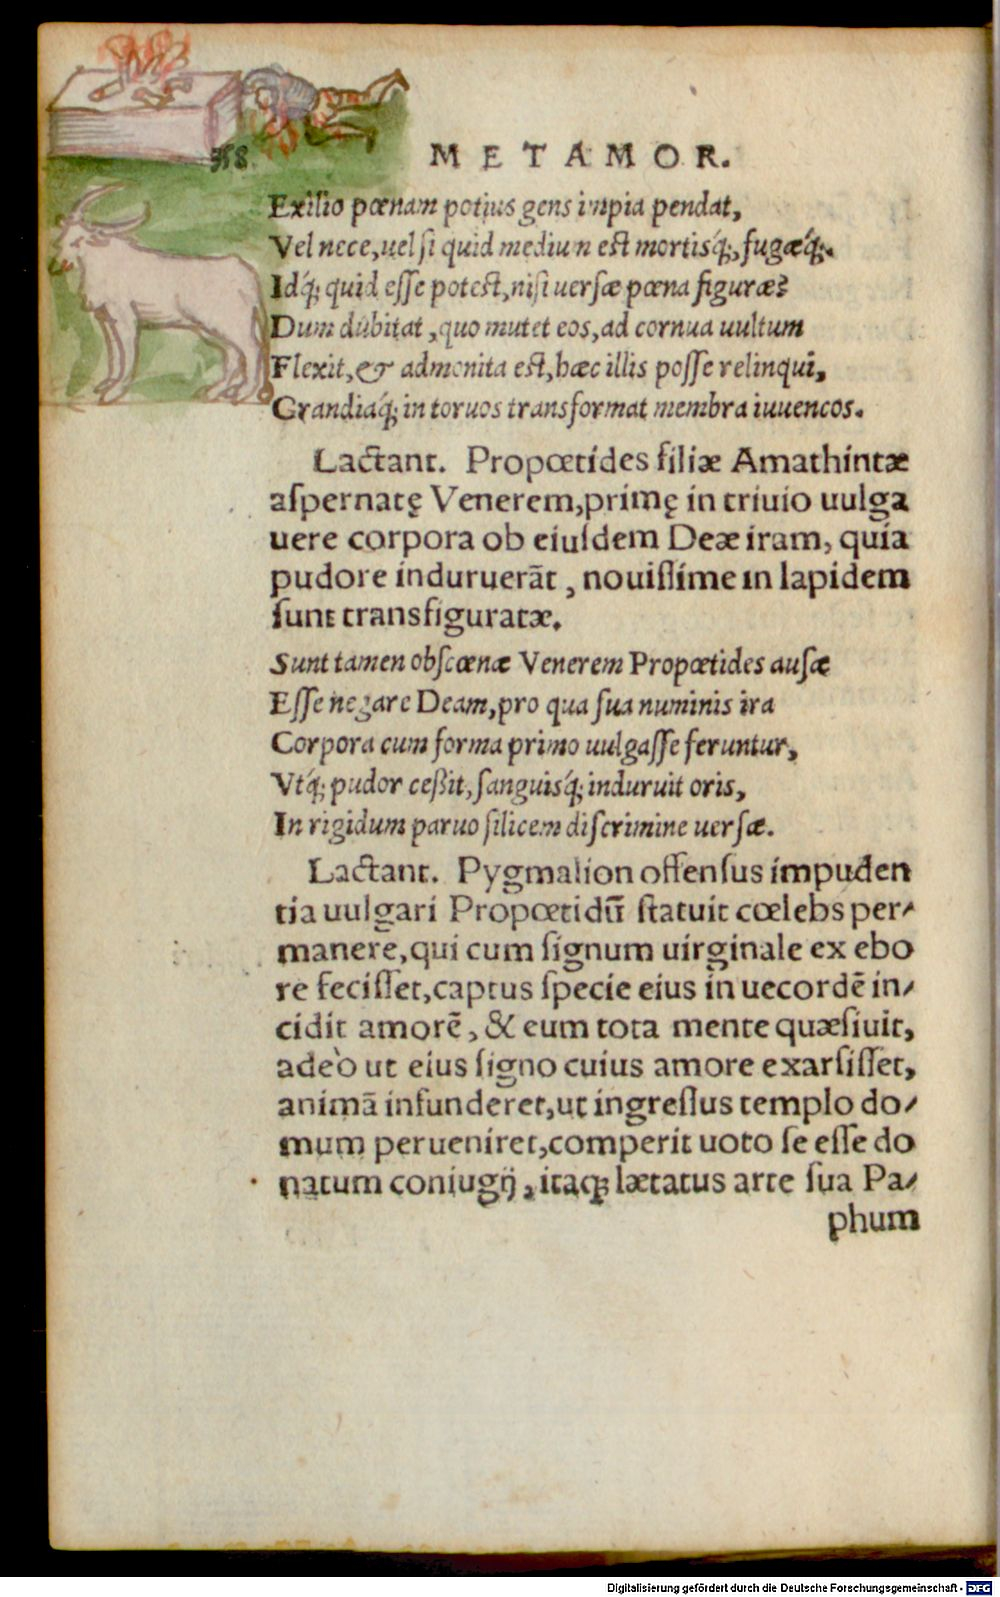 358 METAMOR.
Exilio pœnam potius gens impia pendat,
Vel nece, uel si quid medium est mortisq́;, fugæq́;.
Idq́; quid esse potest, nisi uersæ pœna figuræ?
Dum dubitat, quo mutet eos, ad cornua uultum
Flexit, & admonita est, hæc illis posse relinqui,
Grandiaq́; in toruos transformat membra iuuencos.
Lactant. Propœtides filiæ Amathintæ
aſpernatę Venerem, primę in triuio uulga
uere corpora ob eiuſdem Deæ iram, quia
pudore induruerāt, nouiſſime in lapidem
ſunt transfiguratæ.
Sunt tamen obſcœnæ Venerem Propœtides auſæ
Eſſe negare Deam, pro qua ſua numinis ira
Corpora cum forma primo uulgaſſe feruntur,
Vtq́; pudor ceßit, ſanguisq́; induruit oris,
In rigidum paruo ſilicem diſcrimine uerſæ.
Lactant. Pygmalion offenſus impuden
tia uulgari Propœtidū ſtatuit cœlebs per-
manere, qui cum ſignum uirginale ex ebo
re feciſſet, captus ſpecie eius in uecordē in-
cidit amorē, & eum tota mente quæſiuit,
adeò ut eius ſigno cuius amore exarſiſſet,
animā infunderet, ut ingreſſus templo do-
mum perueniret, comperit uoto ſe eſſe do
natum coniugij, itaq; lætatus arte ſua Pa-
phum
Digitalisierung gefördert durch die Deutsche Forschungsgemeinschaft - DFG